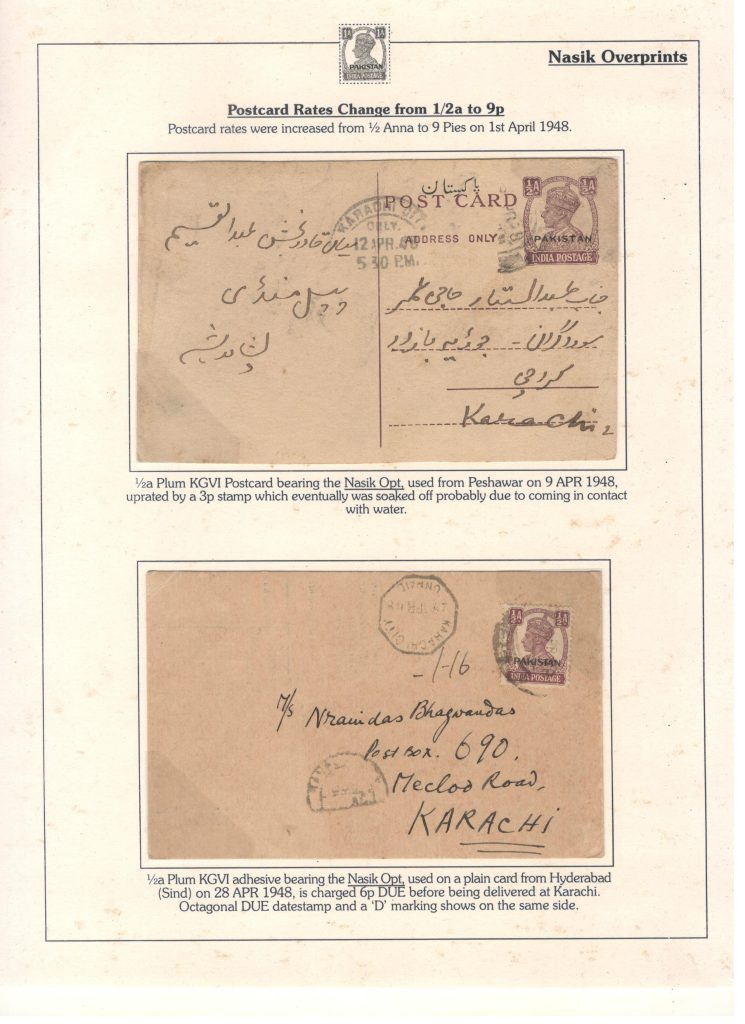 PAKISTAN
INDIA POSTAGE
Nasik Overprints
Postcard Rates Change from 1/2a to 9p
Postcard rates were increased from ½ Anna to 9 Pies on 1st April 1948.
پاکستان
POST CARD
ADDRESS ONLY
½A ½A
PAKISTAN
INDIA POSTAGE
KARACHI CITY
DELY.
12 APR. 48
5 30 P.M.
میاں قادر بخش عبدالقسیم
پیپل منڈی
پشاور
جناب عبدالستار حاجی
سوداگران - جوڑیہ بازار
کراچی
Karachi 2
½a Plum KGVI Postcard bearing the Nasik Opt, used from Peshawar on 9 APR 1948,
uprated by a 3p stamp which eventually was soaked off probably due to coming in contact
with water.
KARACHI CITY
½A ½A
PAKISTAN
INDIA POSTAGE
-/-/6
M/S Nraindas Bhagwandas
Post Box. 690,
Mecloo Road,
KARACHI
½a Plum KGVI adhesive bearing the Nasik Opt, used on a plain card from Hyderabad
(Sind) on 28 APR 1948, is charged 6p DUE before being delivered at Karachi.
Octagonal DUE datestamp and a ‘D’ marking shows on the same side.